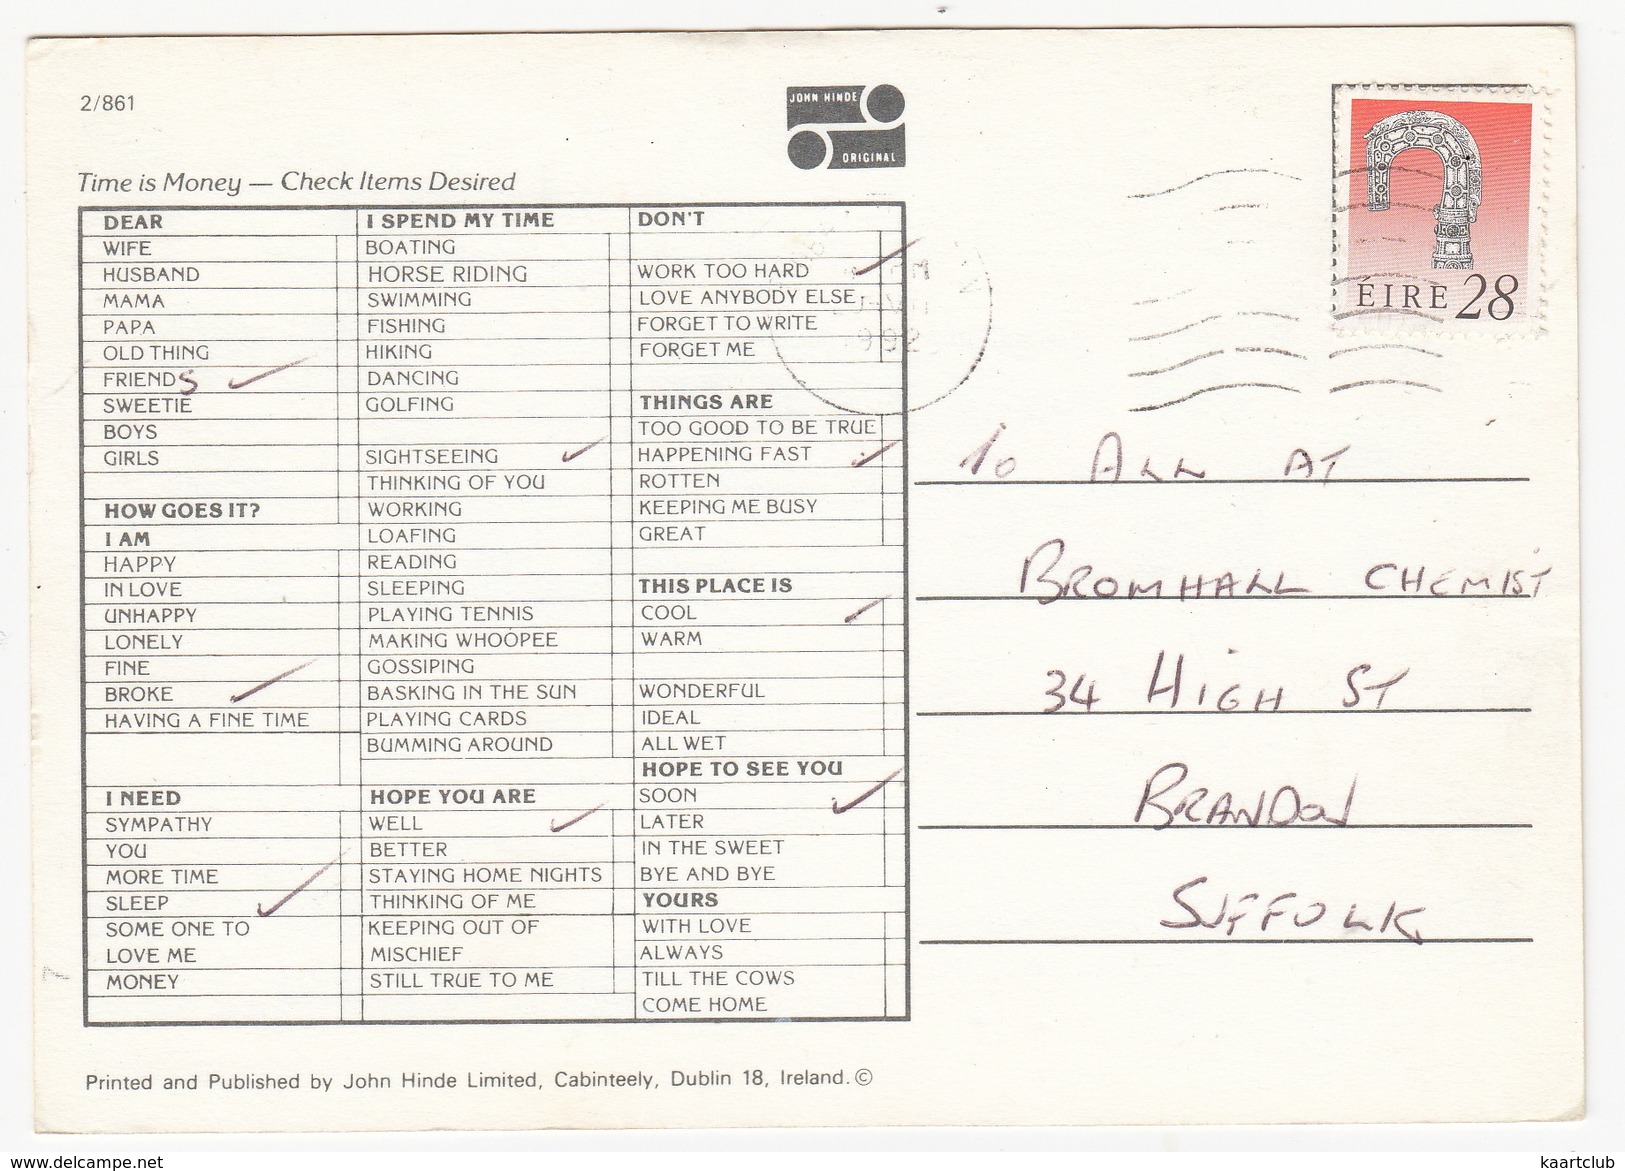 2/861
JOHN HINDE
ORIGINAL
ÉIRE 28
Time is Money — Check Items Desired
DEAR
WIFE
HUSBAND
MAMA
PAPA
OLD THING
FRIENDS ✓
SWEETIE
BOYS
GIRLS
HOW GOES IT?
I AM
HAPPY
IN LOVE
UNHAPPY
LONELY
FINE
BROKE ✓
HAVING A FINE TIME
I NEED
SYMPATHY
YOU
MORE TIME
SLEEP ✓
SOME ONE TO
LOVE ME
MONEY
I SPEND MY TIME
BOATING
HORSE RIDING
SWIMMING
FISHING
HIKING
DANCING
GOLFING
SIGHTSEEING ✓
THINKING OF YOU
WORKING
LOAFING
READING
SLEEPING
PLAYING TENNIS
MAKING WHOOPEE
GOSSIPING
BASKING IN THE SUN
PLAYING CARDS
BUMMING AROUND
HOPE YOU ARE
WELL ✓
BETTER
STAYING HOME NIGHTS
THINKING OF ME
KEEPING OUT OF
MISCHIEF
STILL TRUE TO ME
DON'T
WORK TOO HARD ✓
LOVE ANYBODY ELSE
FORGET TO WRITE
FORGET ME
THINGS ARE
TOO GOOD TO BE TRUE
HAPPENING FAST ✓
ROTTEN
KEEPING ME BUSY
GREAT
THIS PLACE IS
COOL ✓
WARM
WONDERFUL
IDEAL
ALL WET
HOPE TO SEE YOU
SOON ✓
LATER
IN THE SWEET
BYE AND BYE
YOURS
WITH LOVE
ALWAYS
TILL THE COWS
COME HOME
To ALL AT
BROMHALL CHEMIST
34 HIGH ST
BRANDON
SUFFOLK
Printed and Published by John Hinde Limited, Cabinteely, Dublin 18, Ireland. ©
www.delcampe.net
kaartclub